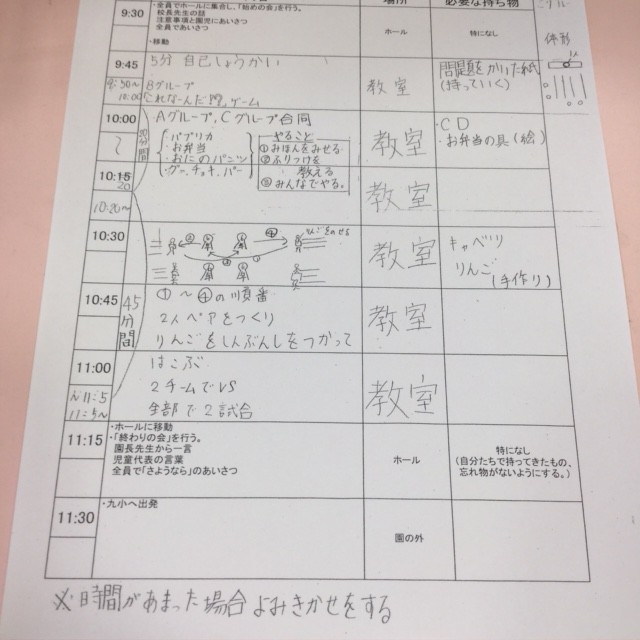 場所
必要な持ち物
9:30
・全員でホールに集合し、「始めの会」を行う。
校長先生の話
注意事項と園児にあいさつ
全員であいさつ
・移動
ホール
特になし
体形
9:45
5分 自己しょうかい
9:50〜
10:00
Bグループ
これなーんだ?ゲーム
教室
問題をかいた紙
(持っていく)
10:00
〜
20分間
Aグループ,Cグループ合同
・パプリカ
・お弁当
・おにのパンツ
・グー,チョキ,パー
やること
①みほんをみせる
②ふりつけを
教える
③みんなでやる。
教室
・CD
・お弁当の具(絵)
10:15
20
10:20〜
教室
10:30
教室
キャベツ
りんご
(手作り)
10:45
45分間
①〜④の順番
2人ペアをつくり
りんごをしんぶんしをつかって
教室
11:00
〜11:5
11:5〜
はこぶ
2チームでVS
全部で2試合
教室
11:15
・ホールに移動
・「終わりの会」を行う。
園長先生から一言
児童代表の言葉
全員で「さようなら」のあいさつ
ホール
特になし
(自分たちで持ってきたもの、
忘れ物がないようにする。)
11:30
・九小へ出発
園の外
※時間があまった場合よみきかせをする